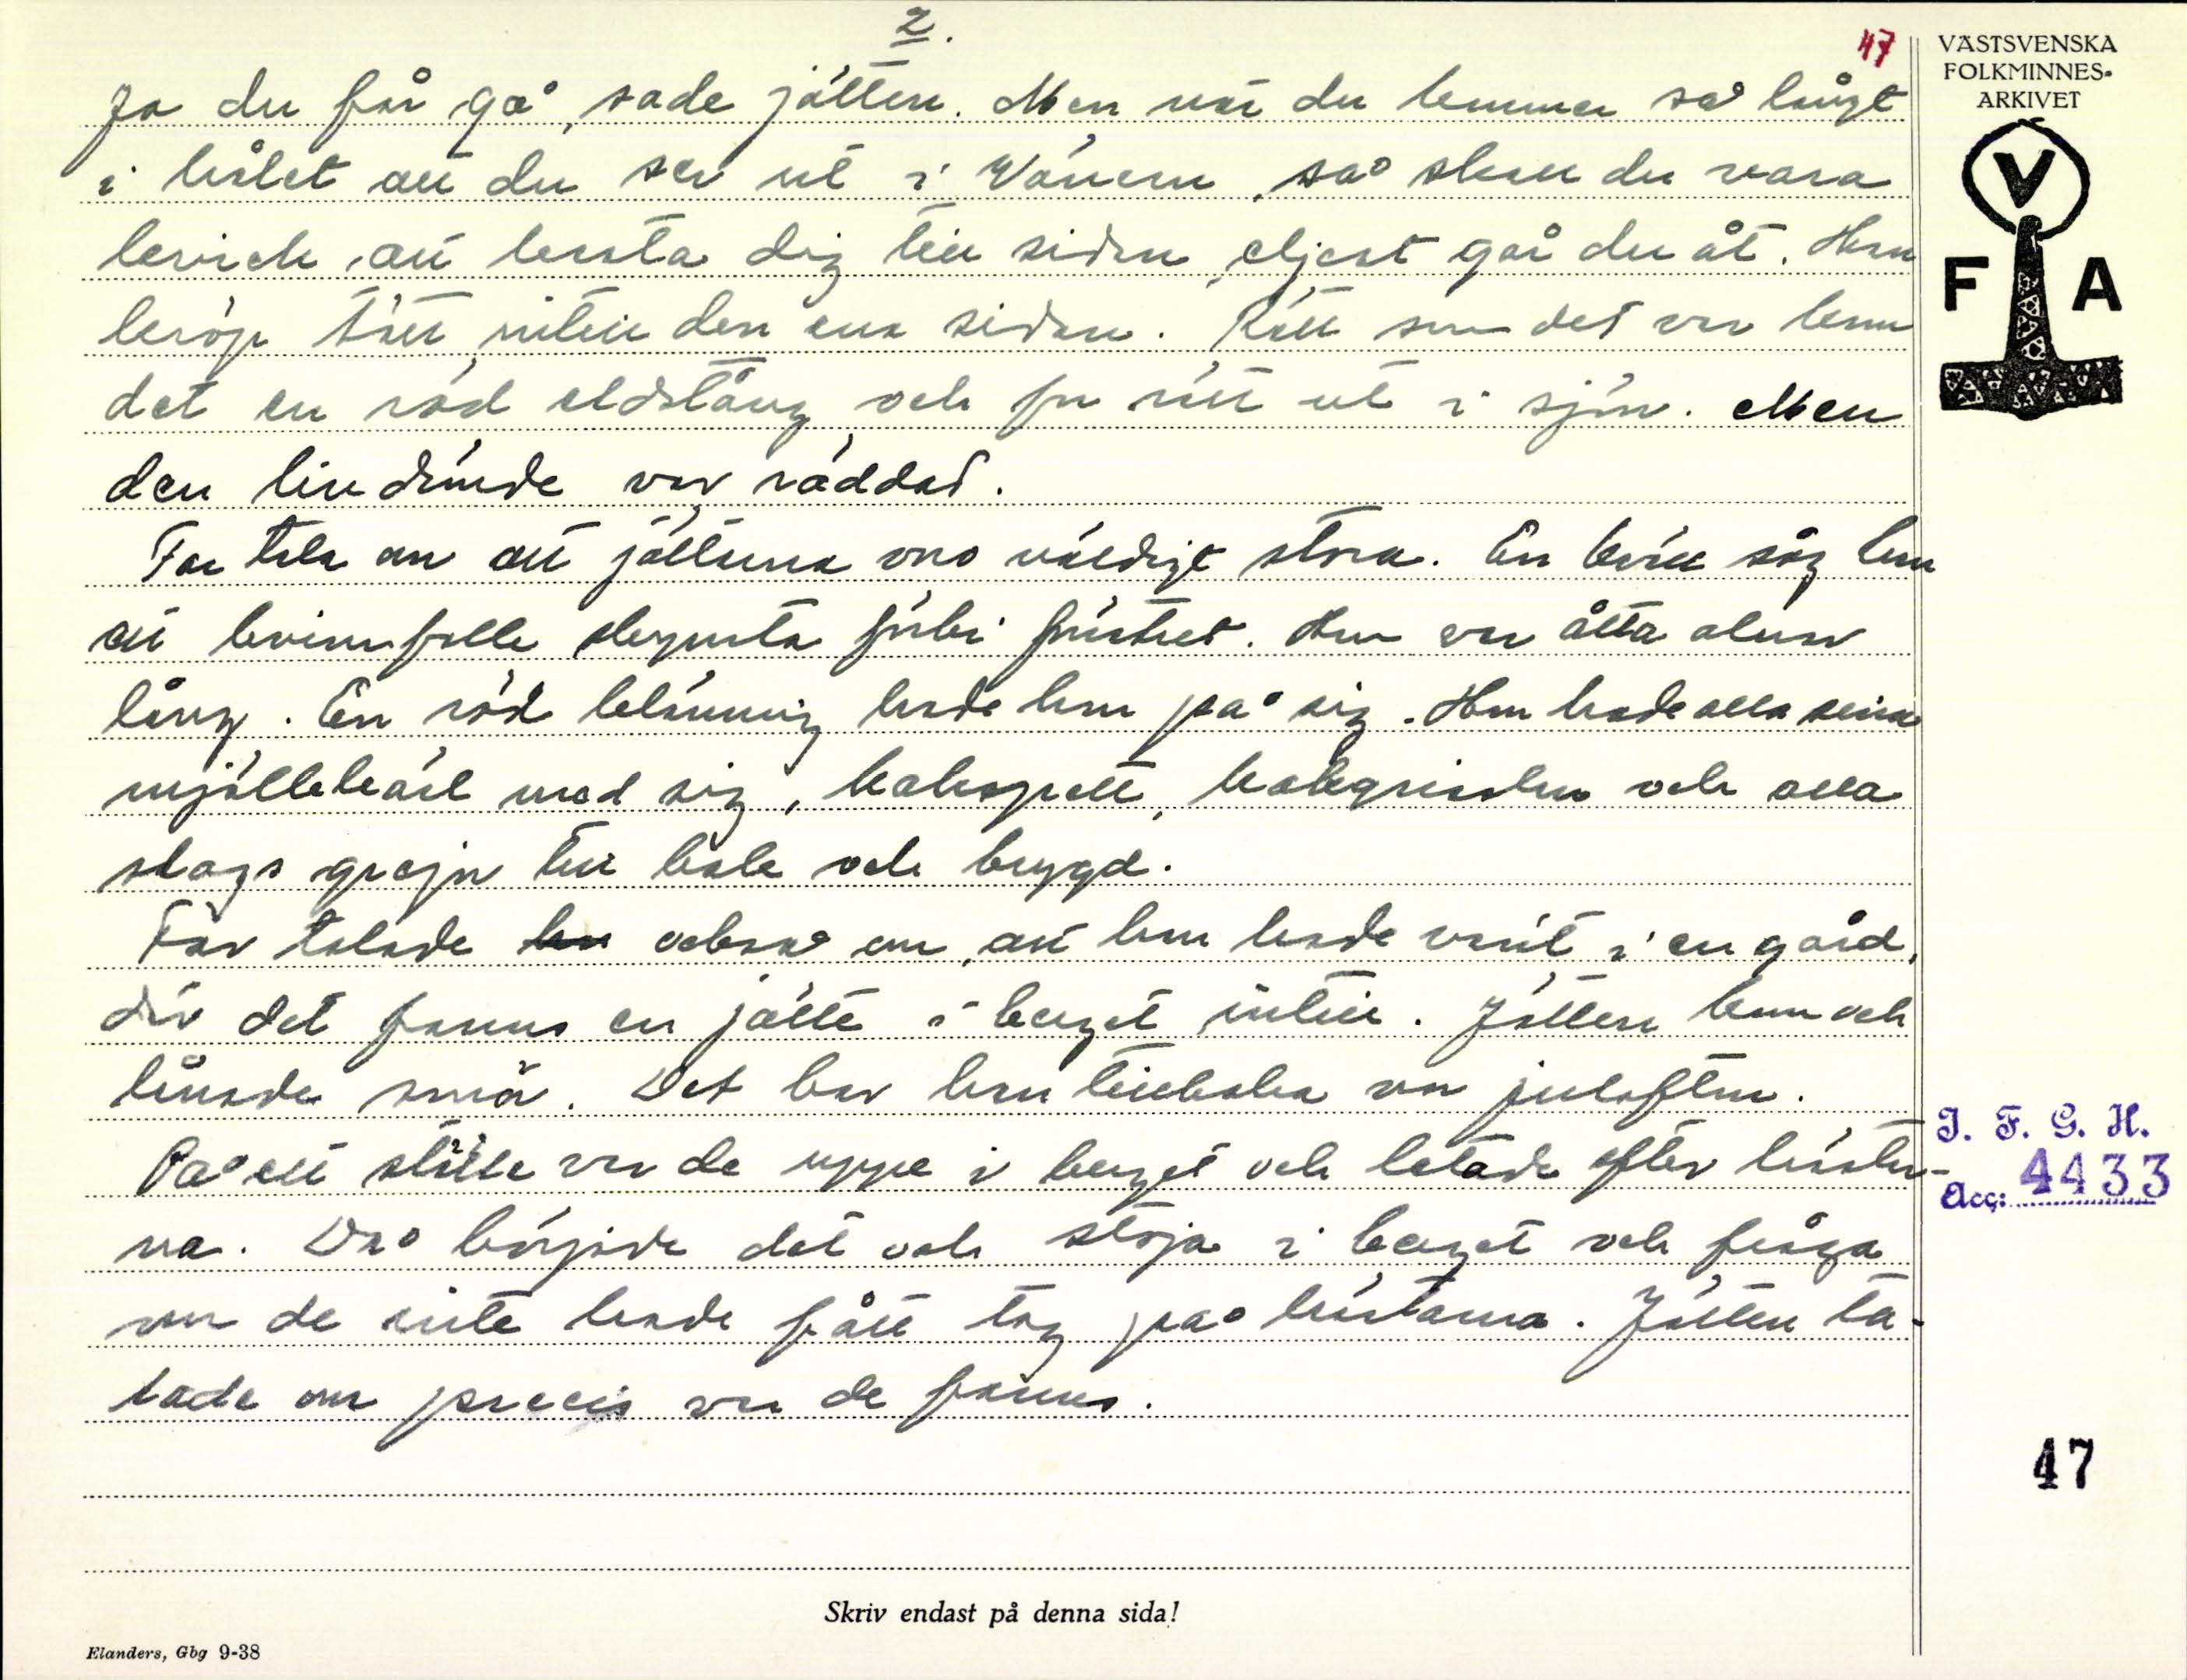 2.
47
VÄSTSVENSKA
FOLKMINNES-
ARKIVET
V
F A
Ja du får gå, sade jätten. Men när du kommer så långt
i hålet att du ser ut i Vänern, så skall du vara
kvick att kasta dig till siden, eljest går du åt. Han
kröp tätt intill den ena sidan. Rätt som det var kom
det en röd eldstång och for rätt ut i sjön. Men
den var räddad.
Far tala om att jättarna voro väldigt stora. En kväll såg han
att kvinnfolk skymta förbi fönstret. Hon var åtta alnar
lång. En röd klänning hade hon på sig. Hon hade alla sina
mjölkekärl med sig, bakspett, bakegrisslor och alla
slags grejor till bak och brygd.
Far talade också om, att han hade varit i en gård,
där det fanns en jätte i berget intill. Jätten kom och
lånade smör. Det bar han tillbaka var julafton.
På ett ställe var de uppe i berget och letade efter hästar-
na. Då började det och stoja i berget och fråga
om de inte hade fått tag på hästarna. Jätten ta-
lade om precis var de fanns.
I. F. G. H.
Acc: 4433
47
Skriv endast på denna sida!
Elanders, Gbg 9-38